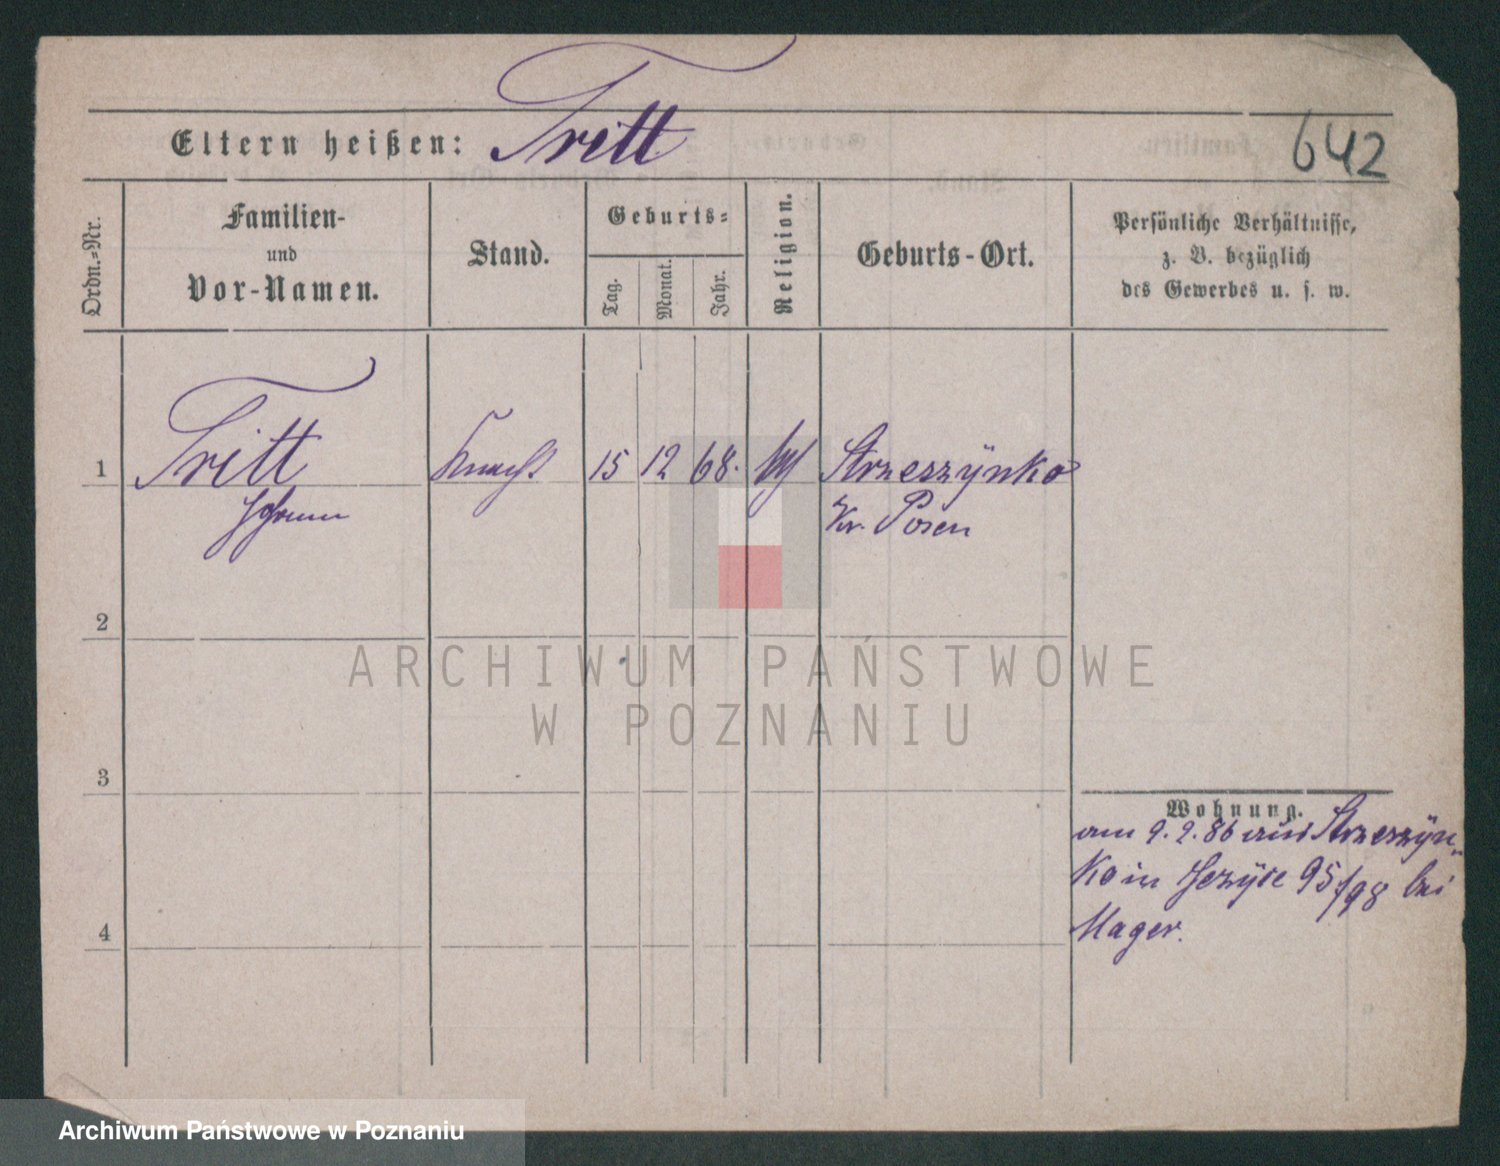 Eltern heißen: Tritt
642
Ordn.-Nr.
Familien-
und
Vor-Namen.
Stand.
Geburts-
Tag.
Monat.
Jahr.
Religion.
Geburts-Ort.
Persönliche Verhältnisse,
z. B. bezüglich
des Gewerbes u. s. w.
1 Tritt Knecht 15 12 68. Strzeszÿnko
Johann Kr. Posen
2
ARCHIWUM PAŃSTWOWE
W POZNANIU
3
Wohnung.
am 9. 2. 86 aus Strzeszÿn-
ko in Jezÿce 95/98 bei
Mager.
4
Archiwum Państwowe w Poznaniu